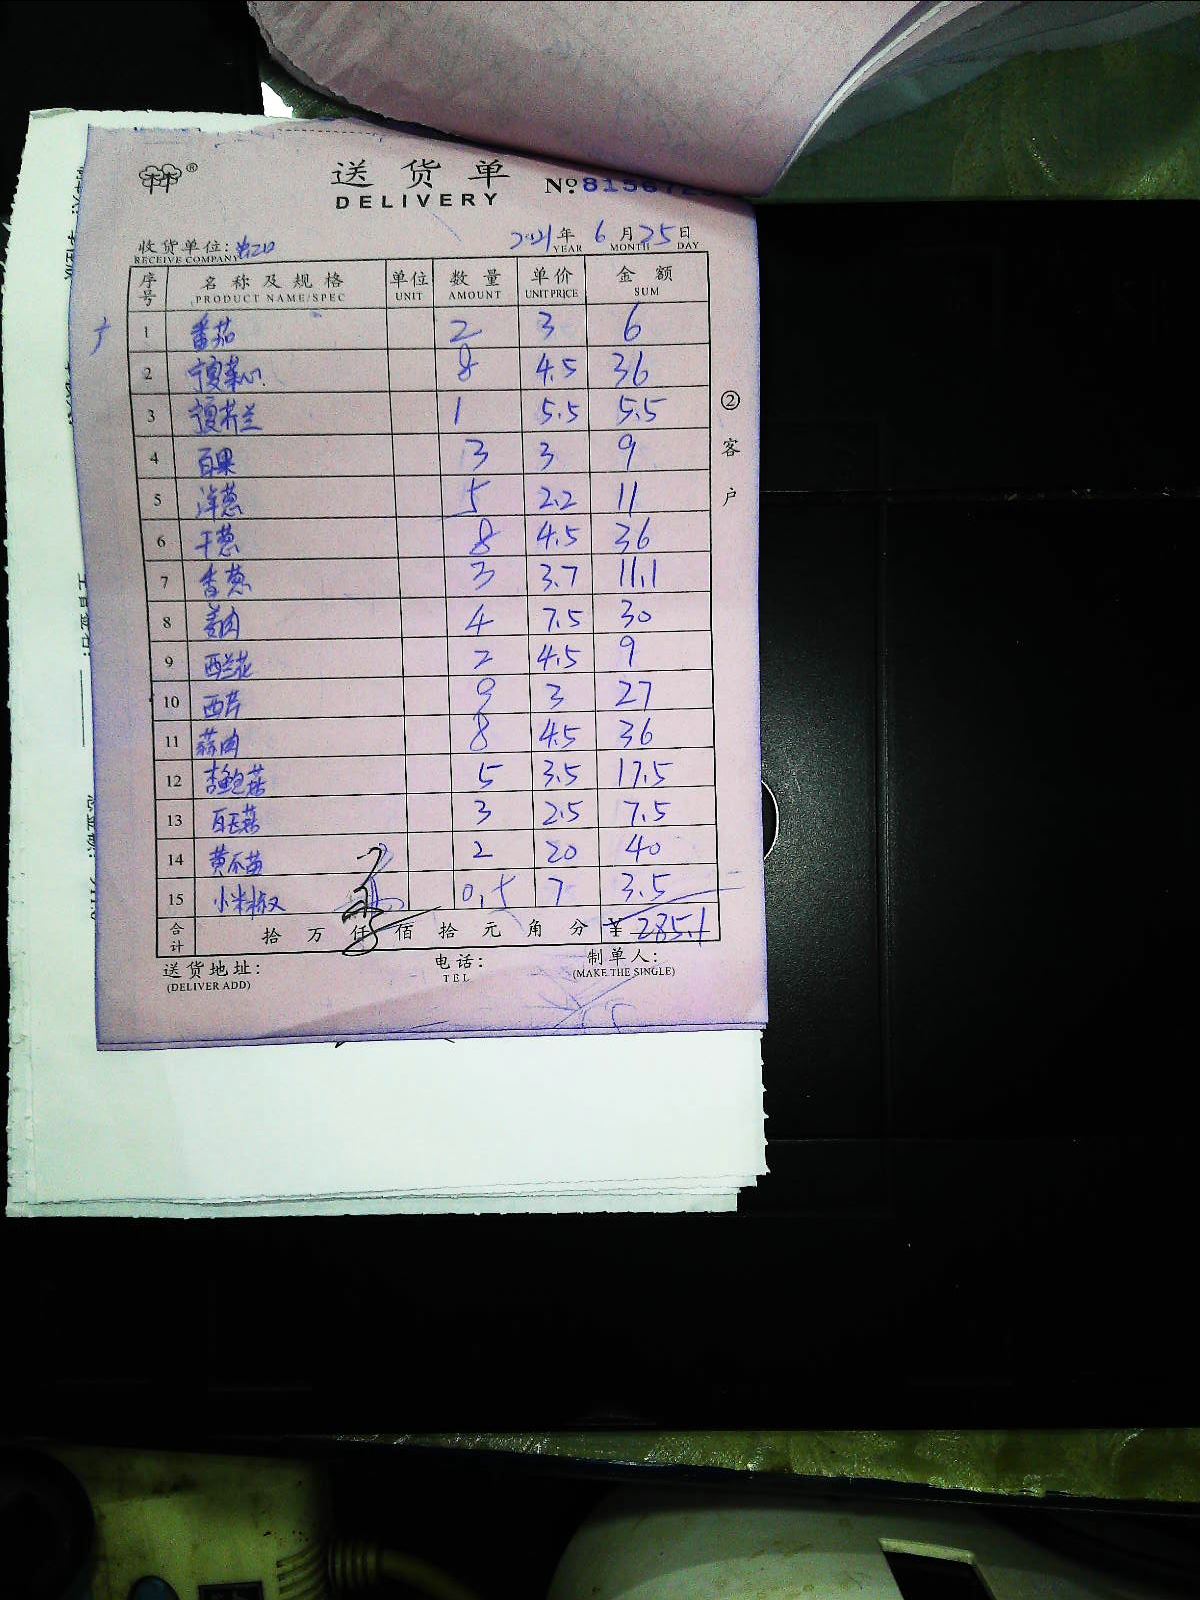 送货单
DELIVERY
№
收货单位：
RECEIVE COMPANY
2021年 6月25日
YEAR MONTH DAY
序号 名称及规格 单位 数量 单价 金额
PRODUCT NAME/SPEC UNIT AMOUNT UNIT PRICE SUM
1 番茄 2 3 6
2 宁夏菜心 8 4.5 36
3 宁夏芥兰 1 5.5 5.5
4 百果 3 3 9
5 洋葱 5 2.2 11
6 干葱 8 4.5 36
7 香葱 3 3.7 11.1
8 姜肉 4 7.5 30
9 西兰花 2 4.5 9
10 西芹 9 3 27
11 蒜肉 8 4.5 36
12 杏鲍菇 5 3.5 17.5
13 白玉菇 3 2.5 7.5
14 黄瓜苗 2 20 40
15 小米椒 0.5 7 3.5
合计 拾 万 仟 佰 拾 元 角 分 ¥ 285.1
②客户
送货地址：
(DELIVER ADD)
电话：
TEL
制单人：
(MAKE THE SINGLE)